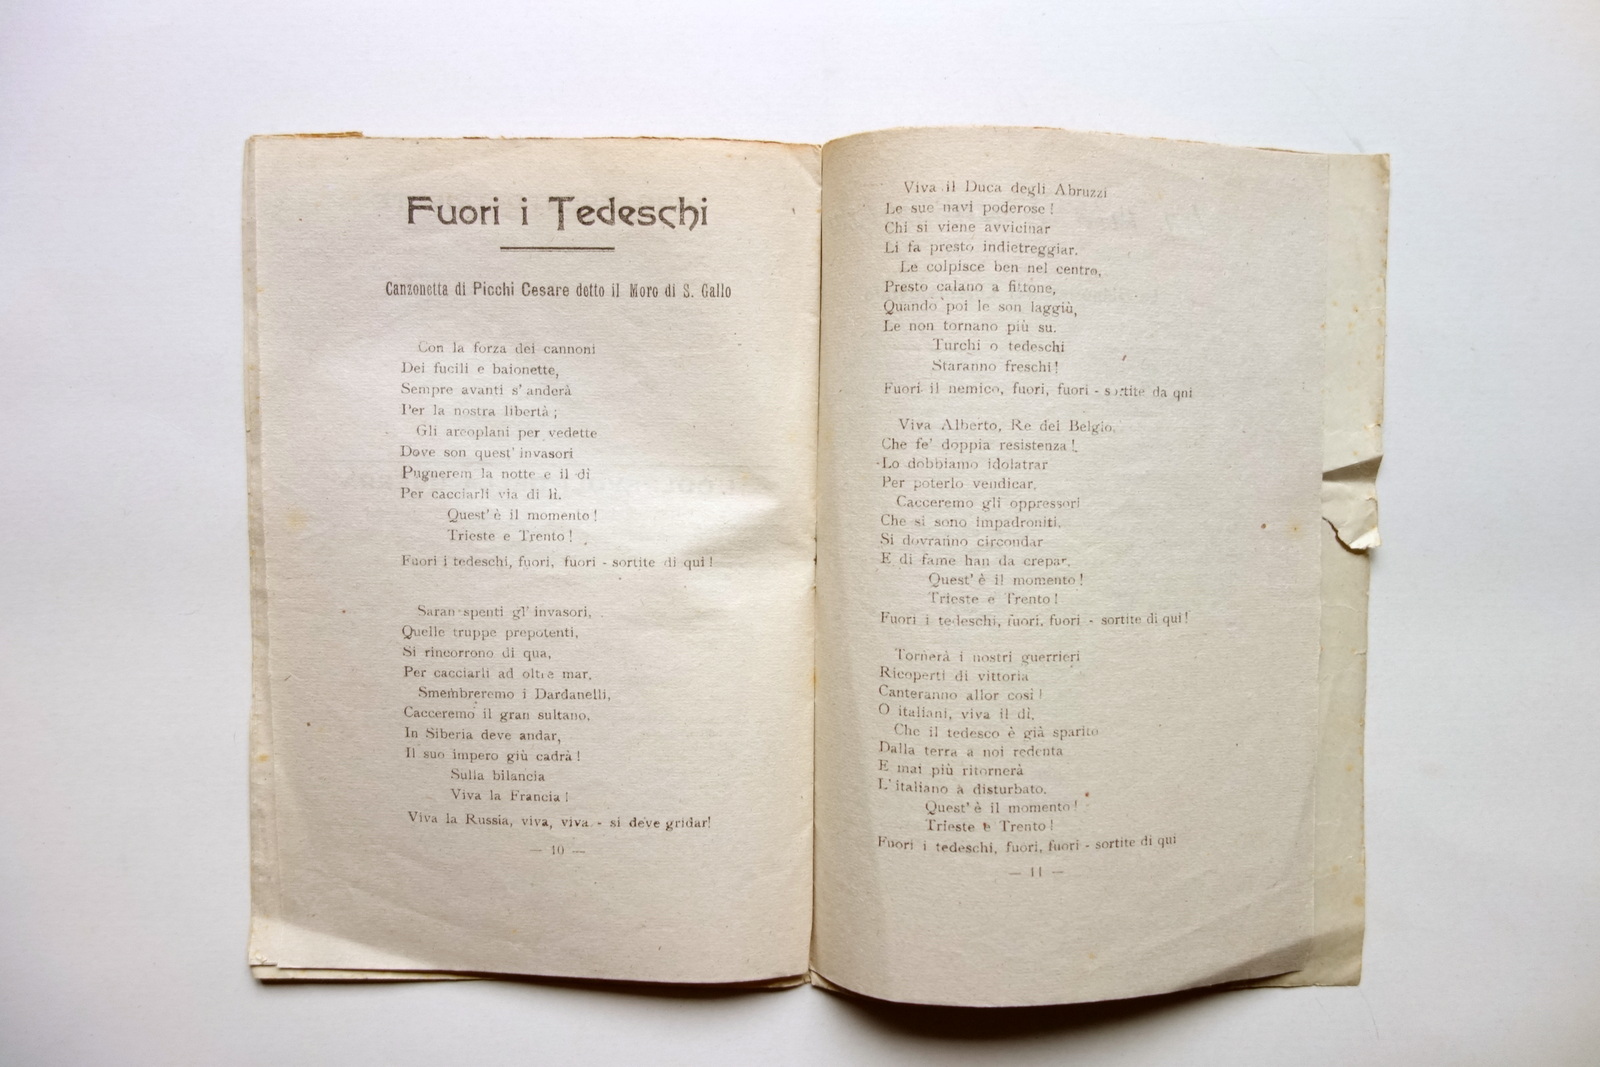 Fuori i Tedeschi
Canzonetta di Picchi Cesare detto il Moro di S. Gallo
Con la forza dei cannoni
Dei fucili e baionette,
Sempre avanti s' anderà
Per la nostra libertà ;
Gli areoplani per vedette
Dove son quest' invasori
Pugnerem la notte e il dì
Per cacciarli via di lì.
Quest' è il momento !
Trieste e Trento !
Fuori i tedeschi, fuori, fuori - sortite di qui !
Saran spenti gl' invasori,
Quelle truppe prepotenti,
Si rincorrono di qua,
Per cacciarli ad oltre mar.
Smembreremo i Dardanelli,
Cacceremo il gran sultano,
In Siberia deve andar,
Il suo impero giù cadrà !
Sulla bilancia
Viva la Francia !
Viva la Russia, viva, viva - si deve gridar!
— 10 —
Viva il Duca degli Abruzzi
Le sue navi poderose !
Chi si viene avvicinar
Li fa presto indietreggiar.
Le colpisce ben nel centro,
Presto calano a fittone,
Quando poi le son laggiù,
Le non tornano più su.
Turchi o tedeschi
Staranno freschi !
Fuori il nemico, fuori, fuori - sortite da qni
Viva Alberto, Re del Belgio,
Che fe' doppia resistenza !
Lo dobbiamo idolatrar
Per poterlo vendicar.
Cacceremo gli oppressori
Che si sono impadroniti,
Si dovranno circondar
E di fame han da crepar.
Quest' è il momento !
Trieste e Trento !
Fuori i tedeschi, fuori, fuori - sortite di qui !
Tornerà i nostri guerrieri
Ricoperti di vittoria
Canteranno allor così !
O italiani, viva il dì,
Che il tedesco è già sparito
Dalla terra a noi redenta
E mai più ritornerà
L' italiano à disturbato.
Quest' è il momento !
Trieste e Trento !
Fuori i tedeschi, fuori, fuori - sortite di qui
— 11 —